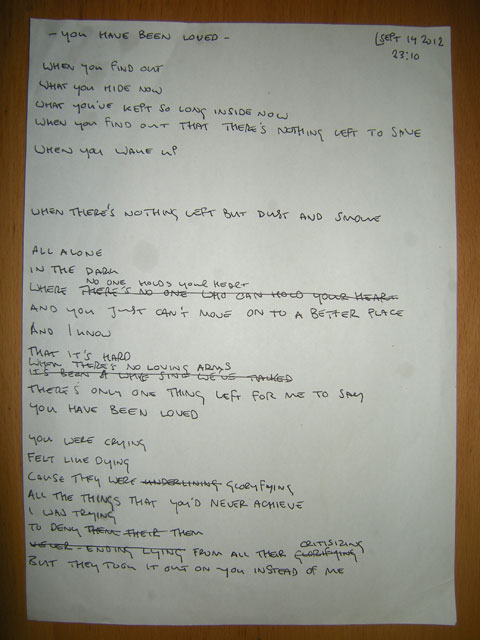 - YOU HAVE BEEN LOVED -
SEPT 14 2012
23:10
WHEN YOU FIND OUT
WHAT YOU HIDE NOW
WHAT YOU'VE KEPT SO LONG INSIDE NOW
WHEN YOU FIND OUT THAT THERE'S NOTHING LEFT TO SAVE
WHEN YOU WAKE UP
WHEN THERE'S NOTHING LEFT BUT DUST AND SMOKE
ALL ALONE
IN THE DARK
NO ONE HOLDS YOUR HEART
WHERE THERE'S NO ONE WHO CAN HOLD YOUR HEART
AND YOU JUST CAN'T MOVE ON TO A BETTER PLACE
AND I KNOW
THAT IT'S HARD
WHEN THERE'S NO LOVING ARMS
IT'S BEEN A WHILE SINE WE'VE TALKED
THERE'S ONLY ONE THING LEFT FOR ME TO SAY
YOU HAVE BEEN LOVED
YOU WERE CRYING
FELT LIKE DYING
CAUSE THEY WERE UNDERLINING GLORYFYING
ALL THE THINGS THAT YOU'D NEVER ACHIEVE
I WAS TRYING
TO DENY THEM THEIR THEM
CRITISIZING
NEVER-ENDING LYING FROM ALL THEIR GLORIFYING
BUT THEY TOOK IT OUT ON YOU INSTEAD OF ME